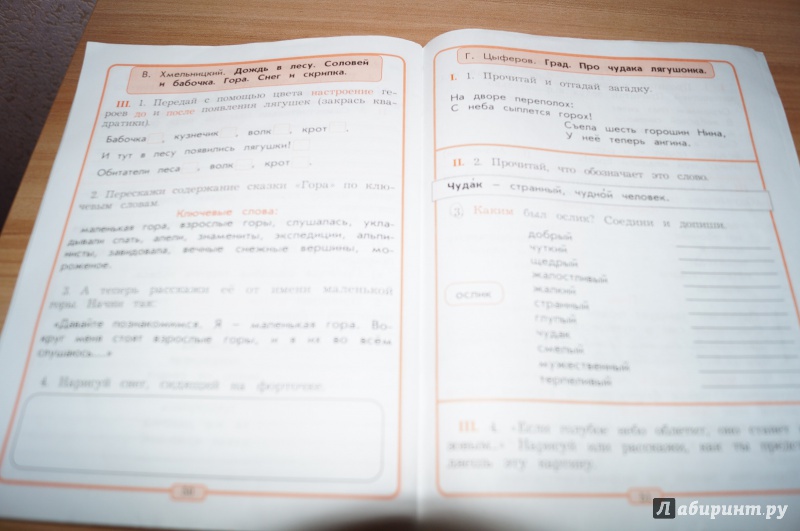 В. Хмельницкий. Дождь в лесу. Соловей
и бабочка. Гора. Снег и скрипка.
III. 1. Передай с помощью цвета настроение ге-
роев до и после появления лягушек (закрась ква-
дратики).
Бабочка , кузнечик , волк , крот .
И тут в лесу появились лягушки!
Обитатели леса , волк , крот .
2. Перескажи содержание сказки «Гора» по клю-
чевым словам.
Ключевые слова:
маленькая гора, взрослые горы, слушалась, укла-
дывали спать, апели, знамениты, экспедиции, альпи-
нисты, завидовала, вечные снежные вершины, мо-
роженое.
3. А теперь расскажи её от имени маленькой
горы. Начне так:
«Давайте познакомимся. Я – маленькая гора. Во-
круг меня стоят взрослые горы, и я их во всём
слушаюсь...»
4. Нарисуй снег, сидящий на форточке.
Г. Цыферов. Град. Про чудака лягушонка.
I. 1. Прочитай и отгадай загадку.
На дворе переполох:
С неба сыплется горох!
Съела шесть горошин Нина,
У неё теперь ангина.
II. 2. Прочитай, что обозначает это слово.
Чуда́к – странный, чудно́й человек.
3. Каким был ослик? Соедини и допиши.
добрый
чуткий
щедрый
жалостливый
жалкий
ослик
странный
глупый
чудак
смелый
мужественный
терпеливый
III. 4. «Если голубое небо облетит, оно станет
новым.» Нарисуй или расскажи, как ты предст
ляешь эту картину.
Лабиринт.ру